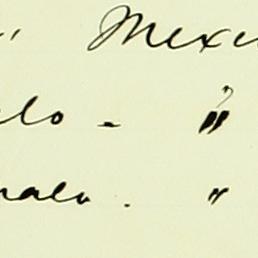 " Mexic
lo - "
nalu . "